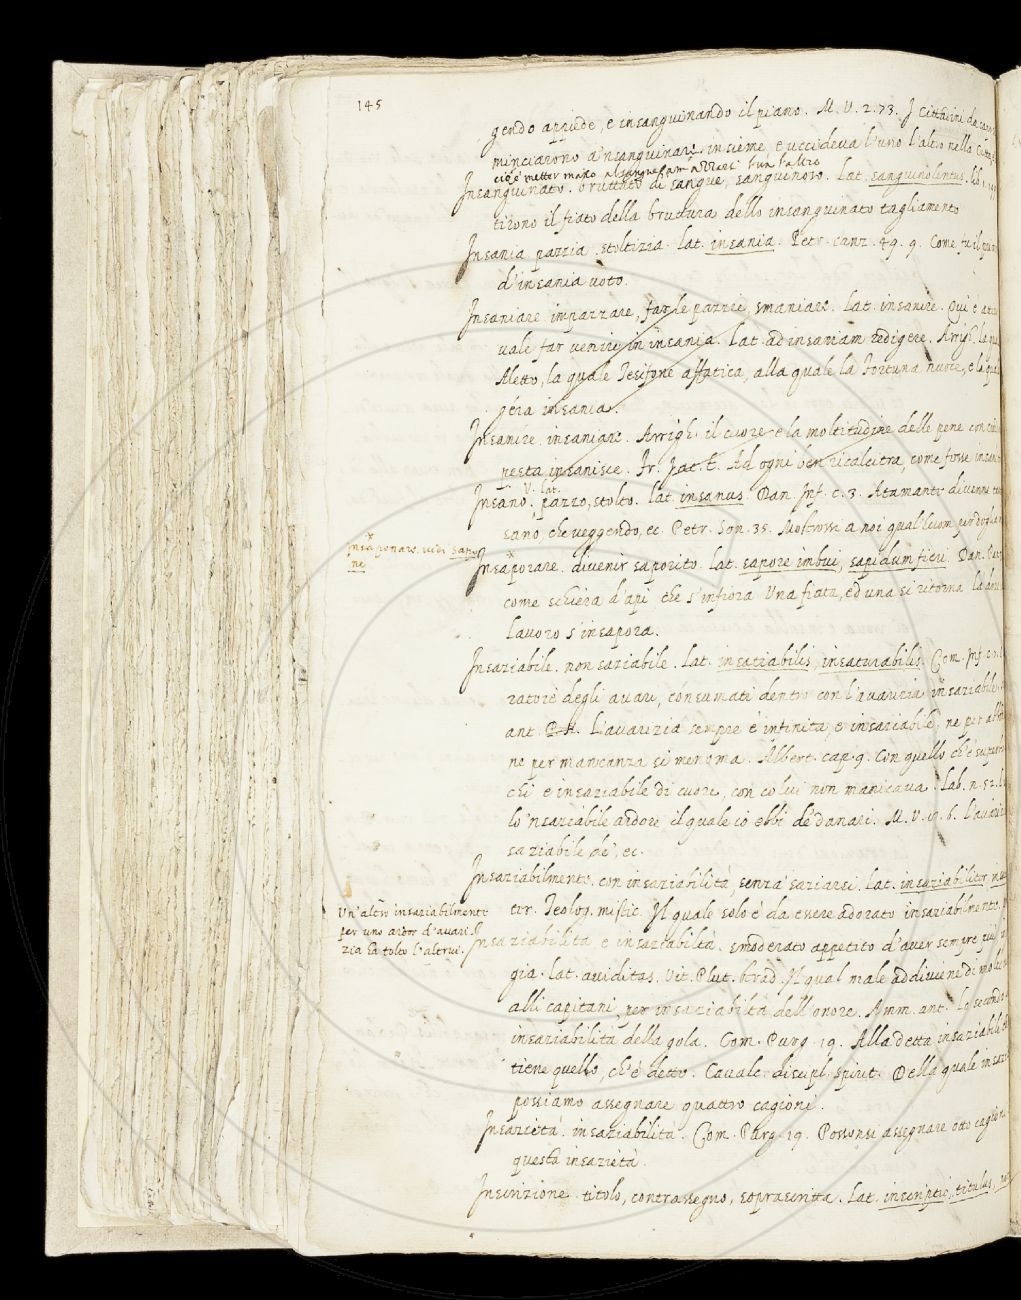 145
gendo appiede, e insanguinando il piano. M. V. 2. 73. I Cittadini da capo
minciarono a'nsanguinare insieme e uccideva l'uno l'altro nella Città,
cioè metter mano al sangue l'un l'altro
Insanguinato. bruttato di sangue, sanguinoso. Lat. sanguinolentus. lib.
tirono il fiato della bruttura dello insanguinato tagliamento
Insania pazzia stoltizia. lat. insania. Petr. canz. 49. 9. Come fu il
d'insania voto.
Insaniare impazzare, far le pazzie, smaniare. Lat. insanire. Qui è
vale far venire in insania. Lat. ad insaniam redigere. Arrigh. la
Aletto, la quale Tesifone affatica, alla quale la Fortuna nuoce, e la
géra insania.
Insanire. insaniare. Arrigh. il cuore e la moltitudine delle pene con
pesta insanisce. Fr. Jac. t. Ad ogni ben ricalcitra, come fosse
V. lat.
Insano. pazzo, stolto. lat. insanus. Dan. Inf. c. 3. Atamante divenne
sano, che veggendo, ec. Petr. Son. 35. Mostrossi a noi qual huom per doglia
Insaponare. vidi sapo
ne
Insaporare. divenir saporito. lat. sapore imbui, sapidum fieri. Dan. Par.
come schiera d'api che s'infiora Una fiata, ed una si ritorna là dove
Lavoro s'insapora.
Insaziabile. non saziabile. Lat. insatiabilis, insaturabilis. Com. Inf.
ratore degli avari, consumati dentro con l'avarizia insaziabile.
ant. L'avarizia sempre è infinita, e insaziabile, ne per
ne per mancanza si menoma. Albert. cap. 9. Con quello ch'è superbo
chi è insaziabile di cuore, con colui non manicava. Lab. n. 52.
lo 'nsaziabile ardore il quale io ebbi de' danari. M. V. 6. l'avarizia
saziabile de', ec.
Insaziabilmente. con insaziabilità, senza saziarsi. Lat. insaziabiliter,
ter. Teolog. mistic. Il quale solo è da essere adorato insaziabilmente.
Un'altro insaziabilmente
per uno ardor d'avari
zia ha tolto l'altrui.
Insaziabilità e insaziabiltà. smoderato appetito d'aver sempre più
gia. lat. aviditas. Vit. Plut. Il qual male addiviene di
alli capitani, per insaziabilità dell'onore. Amm. ant. La seconda
insaziabilità della gola. Com. Purg. 19. Alla detta insaziabilità
tiene quello, ch'è detto. Cavalc. discipl. spirit. Della quale
possiamo assegnare quattro cagioni.
Insazietà. insaziabilità. Com. Purg. 19. Possonsi assegnare otto cagioni
questa insazietà.
Inscrizione. titolo, contrassegno, soprascritta. Lat. inscriptio, titulus,